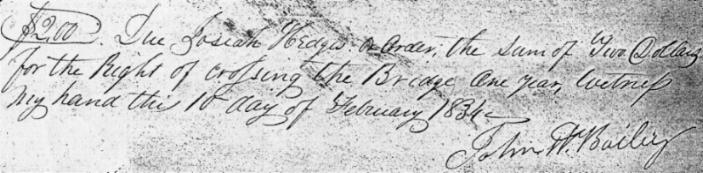 $2.00. Due Josiah Hedges or order, the Sum of Two Dollars
for the Right of crossing the Bridge one year, witness
my hand this 10 day of February 1834
John W. Bailey